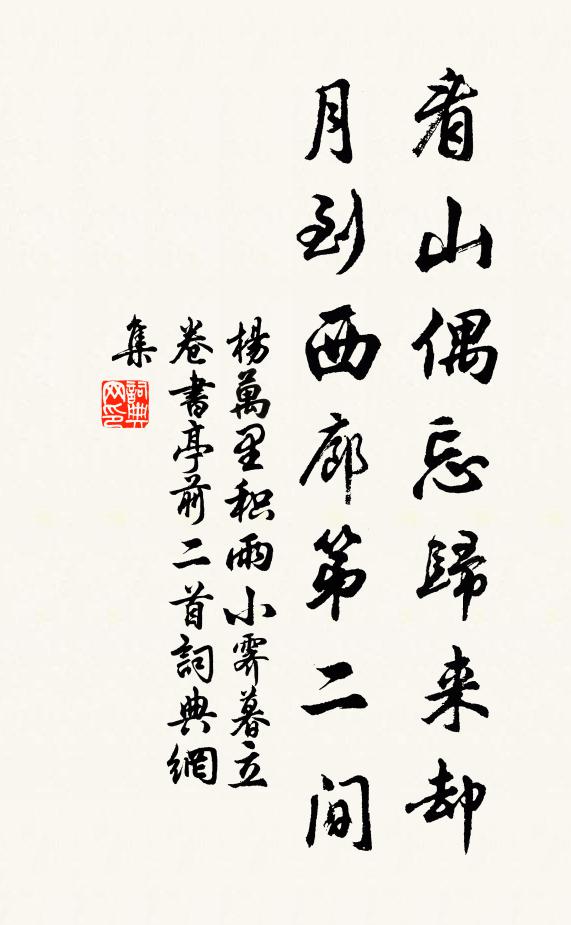 看山偶忘歸来却
月到西廊第二间
楊萬里积雨小霽暮立
卷書亭前二首詞典網
集
詞典
网印